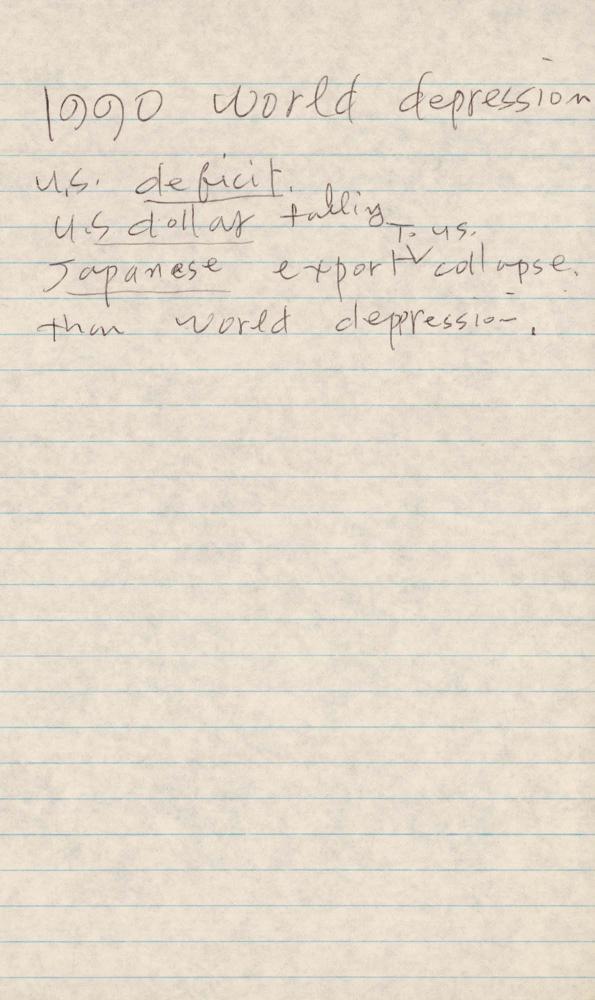 1990 world depression
U.S. deficit.
U.S dollar falling
Japanese export To U.S. collapse.
than world depression.